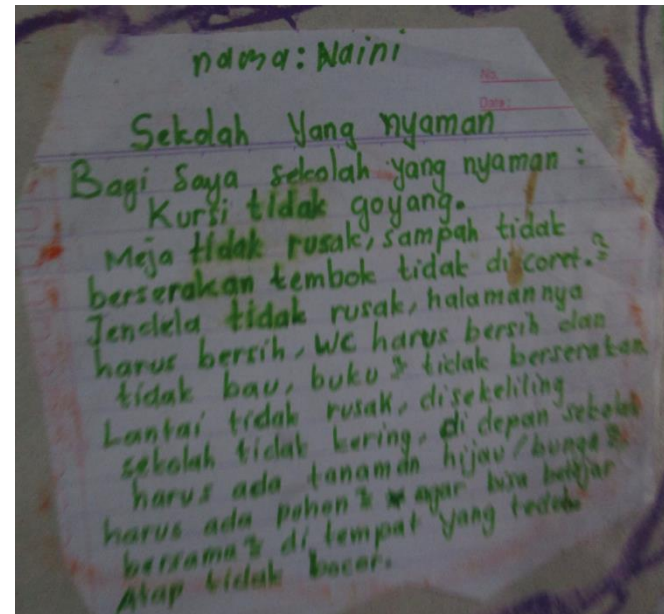 nama: Naini
No.
Date:
Sekolah Yang nyaman
Bagi Saya sekolah yang nyaman :
Kursi tidak goyang.
Meja tidak rusak, sampah tidak
berserakan tembok tidak di coret.²
Jendela tidak rusak, halamannya
harus bersih, WC harus bersih dan
tidak bau, buku² tidak berserakan
Lantai tidak rusak, disekeliling
sekolah tidak kering, di depan sekolah
harus ada tanaman hijau / bunga²
harus ada pohon² agar bisa belajar
bersama² di tempat yang teduh
Atap tidak bocor.